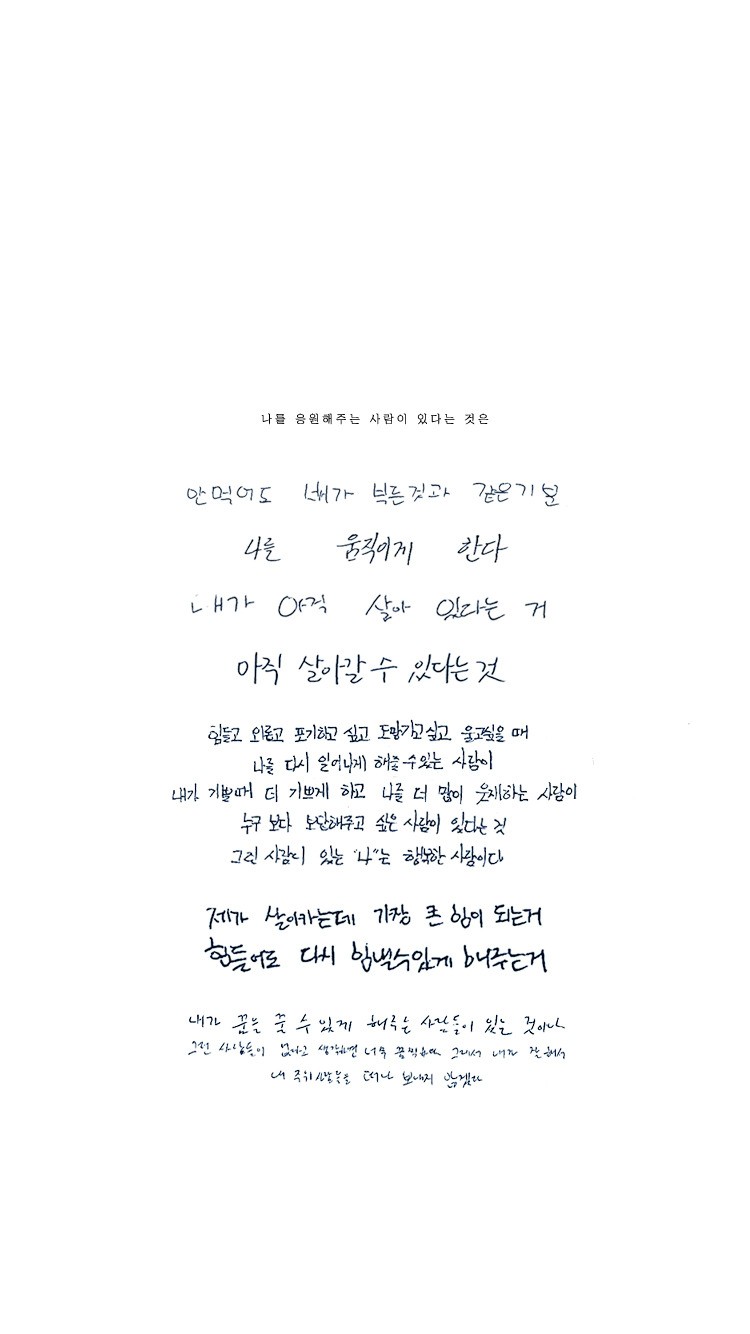 나를 응원해주는 사람이 있다는 것은
안 먹어도 배가 부른것과 같은기분
나를 움직이게 한다
내가 아직 살아 있다는 거
아직 살아갈 수 있다는 것
힘들고 외롭고 포기하고 싶고 도망가고싶고 울고싶을 때
나를 다시 일어나게 해줄 수 있는 사람이
내가 기쁠때 더 기쁘게 하고 나를 더 많이 웃게하는 사람이
누구 보다 보답해주고 싶은 사람이 있다는 것
그런 사람이 있는 "나"는 행복한 사람이다
제가 살아가는데 가장 큰 힘이 되는거
힘들어도 다시 힘낼수있게 해주는거
내가 꿈을 꿀 수 있게 해주는 사람들이 있는 것이다
그런 사람들이 없다고 생각하면 너무 끔찍하다 그래서 내가 잘해서
내 주위 사람들을 떠나 보내지 않겠다